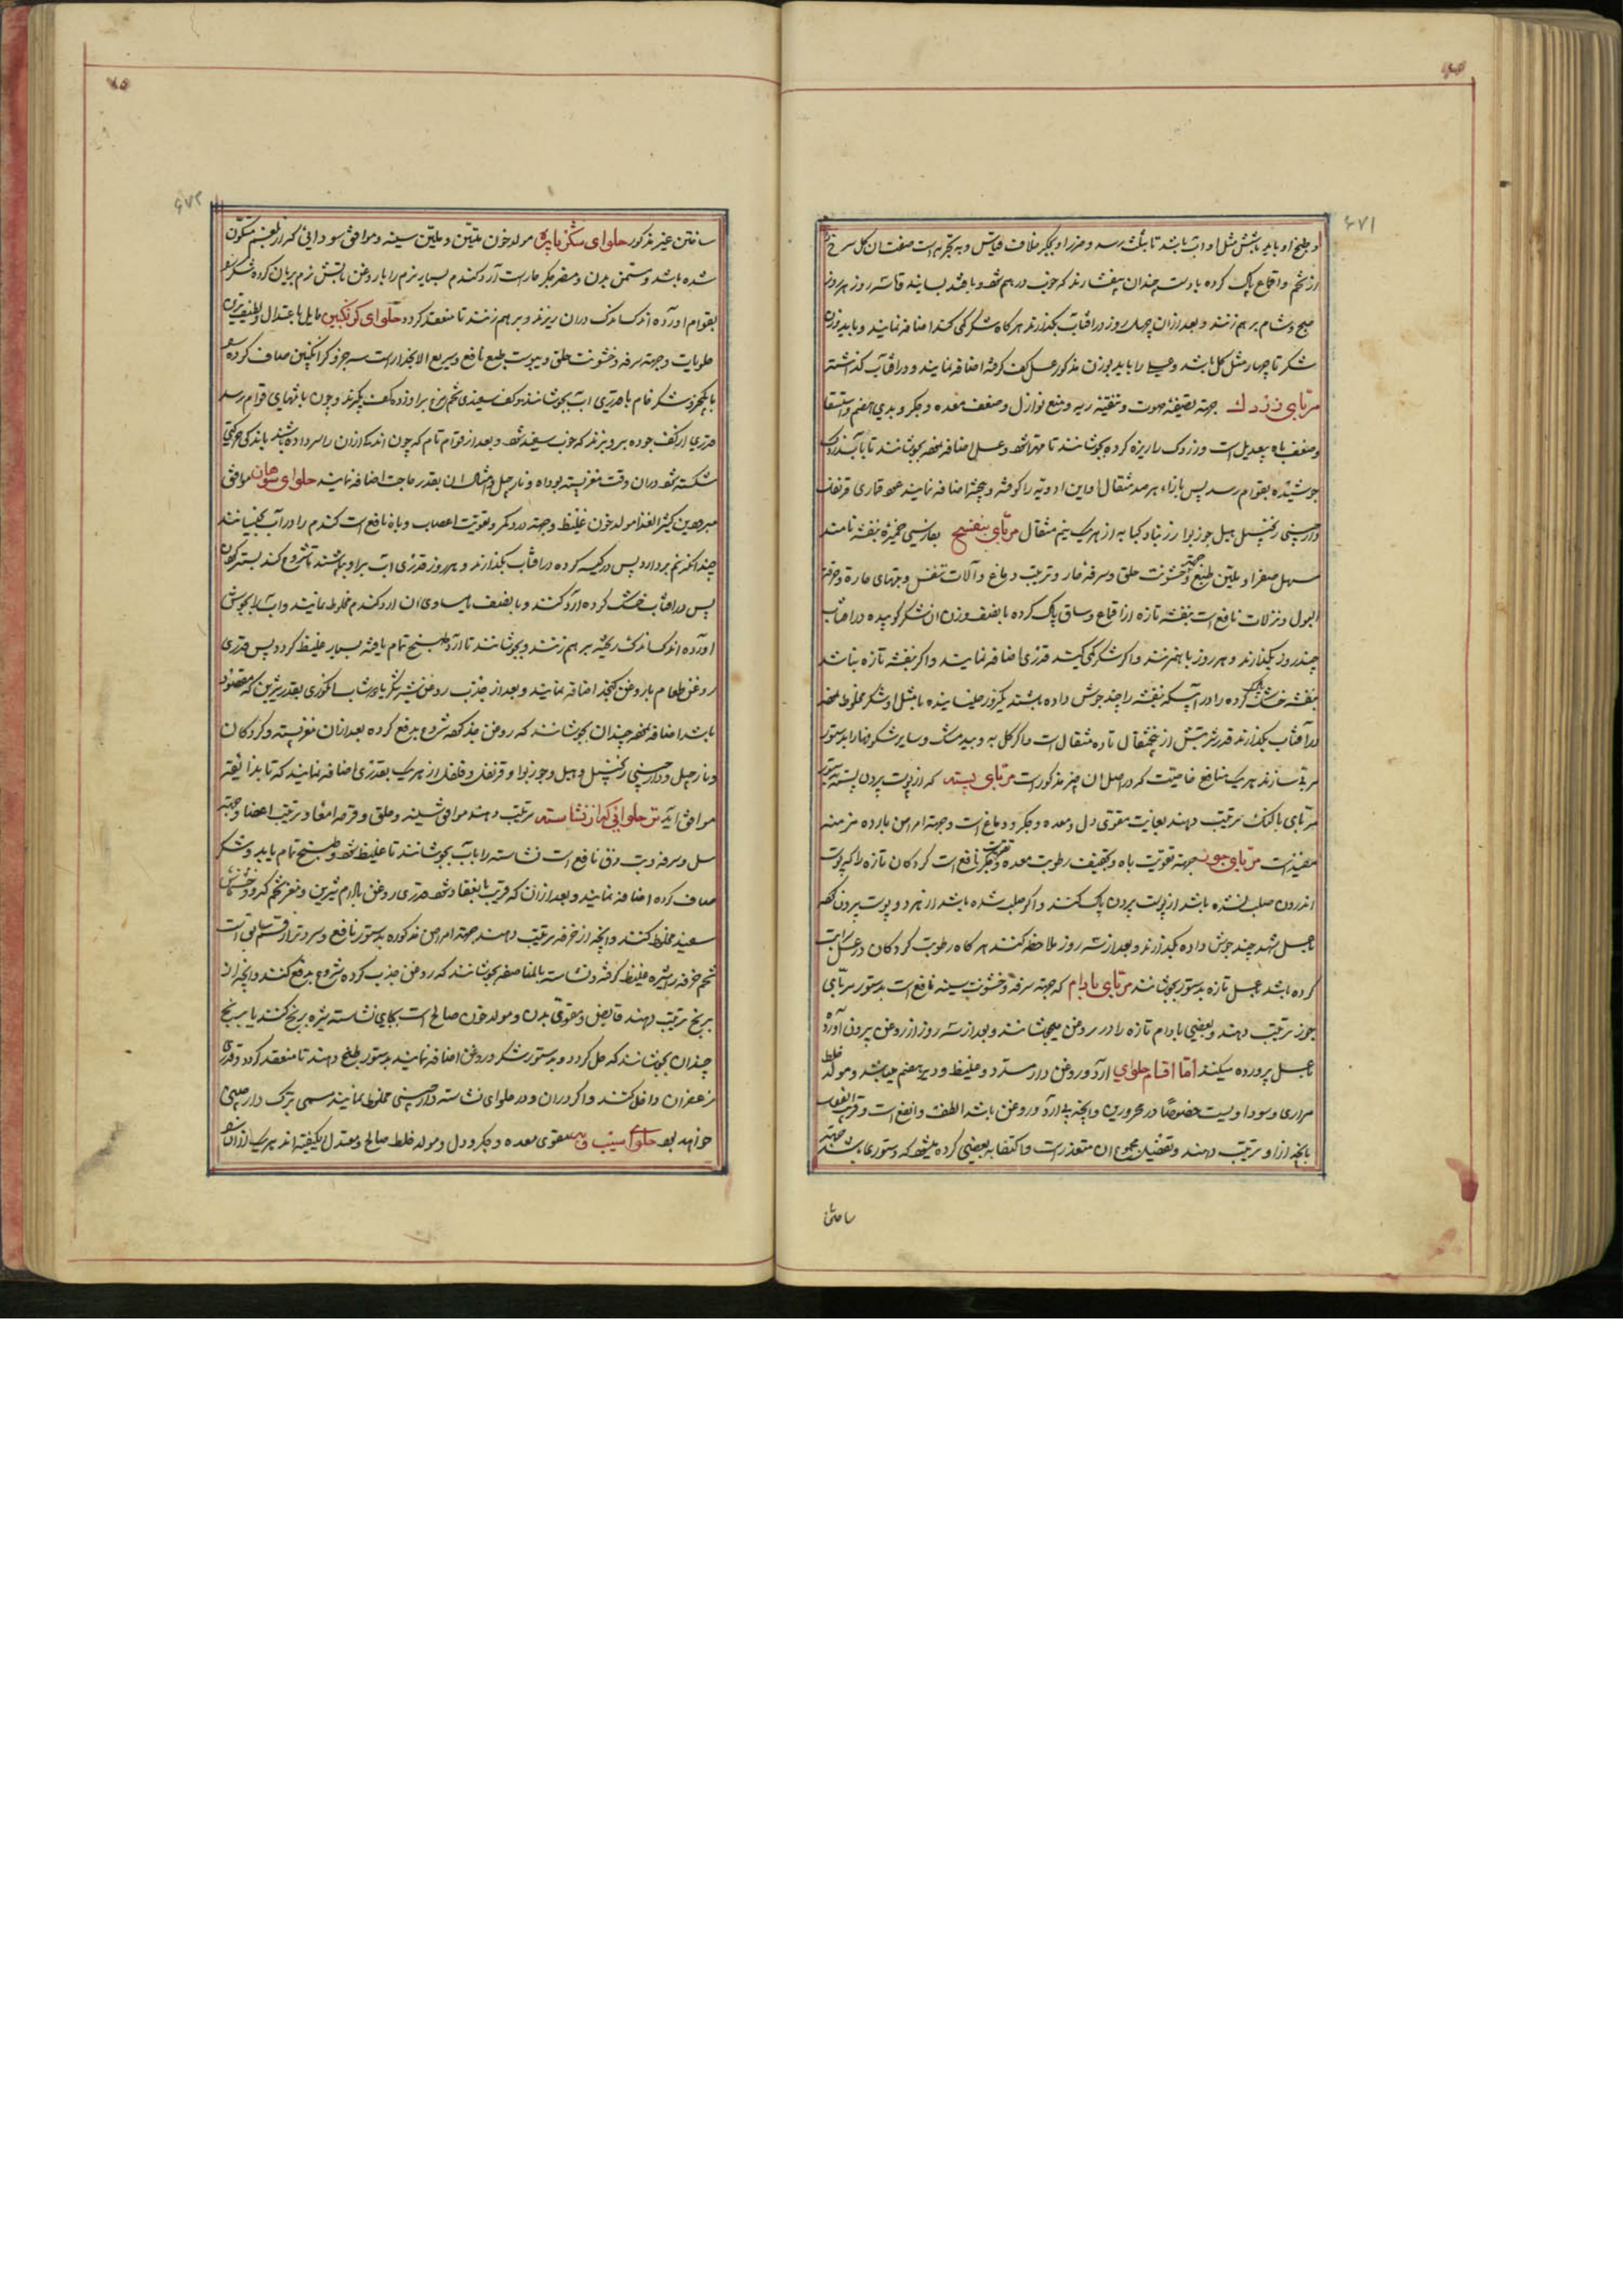 و طبخ او باید بآتش مثل او آب باشد تا بثلث رسد و
از تخم و اقماع پاک کرده با دست چندان بیفشارند که خوب درهم شود و با قند بسایند تا سه روز هر روز
صبح و شام برهم زنند و بعد از آن چهل روز در آفتاب بگذارند هر گاه شکر کمی کند اضافه نمایند و باید وزن
شکر تا چهار مثل گل باشد و عسلی را باید بوزن مذکور عسل کف گرفته اضافه نمایند و در آفتاب گذاشت
مربای زردک جهة تصفیهٔ صوت و تنقیهٔ ریه و منع نوازل و ضعف معده و جگر و بدی هضم و استسقا
و ضعف باه بیعدیل است و زردک را ریزه کرده بجوشانند تا مهرا شود و عسل اضافه نموده بجوشانند تا با آب زردک
جوشیده بقوام رسد پس بازاء هر صد مثقال او این ادویه را کوفته و بیخته اضافه نمایند عود قماری قرنفل
دارچینی زنجبیل هیل جوزبوا زرنباد کبابه از هر یک نیم مثقال مربای بنفسج بفارسی خمیرهٔ بنفشه نامند
مسهل صفرا و ملین طبع و جهة خشونت حلق و سرفه حار و ترطیب دماغ و آلات تنفس و تبهای حاره و حرقة
البول و نزلات نافع است بنفشه تازه از اقماع و ساق پاک کرده با نصف وزن آن شکر کوبیده در آفتاب
چند روز بگذارند و هر روز باهم زنند و اگر شکر کمی کند قدری اضافه نمایند و اگر بنفشه تازه نباشد
بنفشه خشک پاک کرده را در آبی که بنفشه را چند جوش داده باشند یکروز خیسانیده با مثل او شکر مخلوط نموده
در آفتاب بگذارند قدر شربتش از پنج مثقال تا ده مثقال است و اگر گل به و بیدمشک و سایر شکوفها را بدستور
مربی سازند هر یک منافع خاصیت که در اصل آن چیز مذکور است مربای پسته که از پوست بیرون پسته بدستور
مربای بالنک ترتیب دهند بغایت مقوی دل و معده و جگر و دماغ است و جهة امراض بارده مزمنه
مفید است مربای جوز جهة تقویت باه و تجفیف رطوبت معده و تقویت جگر نافع است گردکان تازه را که پوست
اندرون صلب نشده باشد از پوست بیرون پاک کنند و اگر صلب شده باشد از هر دو پوست بیرون کرده
با عسل شهد چند جوش داده بگذارند و بعد از سه روز ملاحظه کنند هر گاه رطوبت گردکان در عسل سرایت
کرده باشد عسل تازه بدستور بجوشانند مربای بادام که جهة سرفه و خشونت سینه نافع است بدستور مربای
جوز ترتیب دهند و بعضی بادام تازه را در روغن میجوشانند و بعد از سه روز از روغن بیرون آورده
با عسل پرورده میکنند اما اقسام حلوای آرد و روغن دار مسدد و غلیظ و دیر هضم میباشد و مولد خلط
مراری و سودا ویست خصوصا در محرورین و آنچه بی آرد و روغن باشد الطف و انفع است و قریب الفعل
بآنچه از او ترتیب دهند و تفصیل مجموع آن متعذر است و اکتفا به بعضی کرده میشود که دستوری باشد جهة
ساختن
ساختن غیر مذکور حلوای شکرپاره مولد خون متین و ملین سینه و موافق سودائی که از بلغم متکون
شده باشد و مسمن بدن و مضر جگر حار است آرد گندم بسیار نرم را با روغن بآتش نرم بریان کرده شکر
بقوام آورده اندک اندک در آن ریزند و برهم زنند تا منعقد گردد حلوای گزنگبین مایل باعتدال و لطیفترین
حلویات و جهة سرفه و خشونت حلق و یبوست طبع نافع و سریع الانحدار است سه جزو گزانگبین صاف کرده
با یکجزو شکر خام با قدری آب بجوشانند و کف سفیدی تخم مرغ برا و زده کف بگیرند و چون بانتهای قوام رسد
قدری از کف چوبه بر و بزنند که خوب سفید شود و بعد از قوام تام که چون اندک از آن را سرد داده باشند باندک حرکتی
شکسته شود در آن وقت مغز پسته بوداده و نارجیل و امثال آن بقدر حاجت اضافه نمایند حلوای سوهان موافق
مبرودین کثیر الغذا مولد خون غلیظ و جهة درد کمر و تقویت اعصاب و باه نافع است گندم را در آب بخیسانند
چندانکه نم بردارد پس در کیسه کرده در آفتاب بگذارند و هر روز قدری آب بر او بپاشند تا شروع کند بسبز شدن
پس در آفتاب خشک کرده آرد کنند و با نصف یا مساوی آن آرد گندم مخلوط نمایند و آب را بجوش
آورده اندک اندک ریخته برهم زنند و بجوشانند تا آرد طبخ تمام یافته بسیار غلیظ گردد پس قدری
روغن طعام یا روغن کنجد اضافه نمایند و بعد از جذب روغن شیره شکر یا دوشاب انگوری بقدر شیرین که مقصود
باشد اضافه نموده چندان بجوشانند که روغن جذب کرده شروع بدفع کرده بعد از آن مغز پسته و گردکان
و نارجیل و دارچینی زنجبیل و هیل و جوزبوا و قرنفل و فلفل از هر یک بقدری اضافه نمایند که تا بذائقه
موافق آید تر حلوائی که از نشاسته ترتیب دهند موافق سینه و حلق و قرحه امعا و ترطیب اعضا و جهة
سل و سرفه و تب دق نافع است نشاسته را بآب بجوشانند تا غلیظ شود و طبخ تمام یابد و شکر
صاف کرده اضافه نمایند و بعد از آن که قریب بانعقاد شود قدری روغن بادام شیرین و مغز تخم کدو و خشخاش
سفید مخلوط کنند و آنچه از خرفه ترتیب دهند جهة امراض مذکوره بدستور نافع و سردتر از قسم سابق است
تخم خرفه را شیره غلیظ گرفته و نشاسته بالمناصفه بجوشانند که روغن جذب کرده شروع بدفع کنند و آنچه از
برنج ترتیب دهند قابض و مقوی بدن و مولد خون صالح است بجای نشاسته شیره برنج کنند یا برنج
چندان بجوشانند که حل گردد و بدستور شکر و روغن اضافه نمایند بدستور طبخ دهند تا منعقد گردد و قدری
زعفران داخل کنند و اگر در آن و در حلوای نشاسته دارچینی مخلوط نمایند مسمی بترک دارچینی
خواهد بود حلوای سیب و به مقوی معده و جگر و دل و مولد خلط صالح و معتدل الکیفیه اند هر یک از آنها